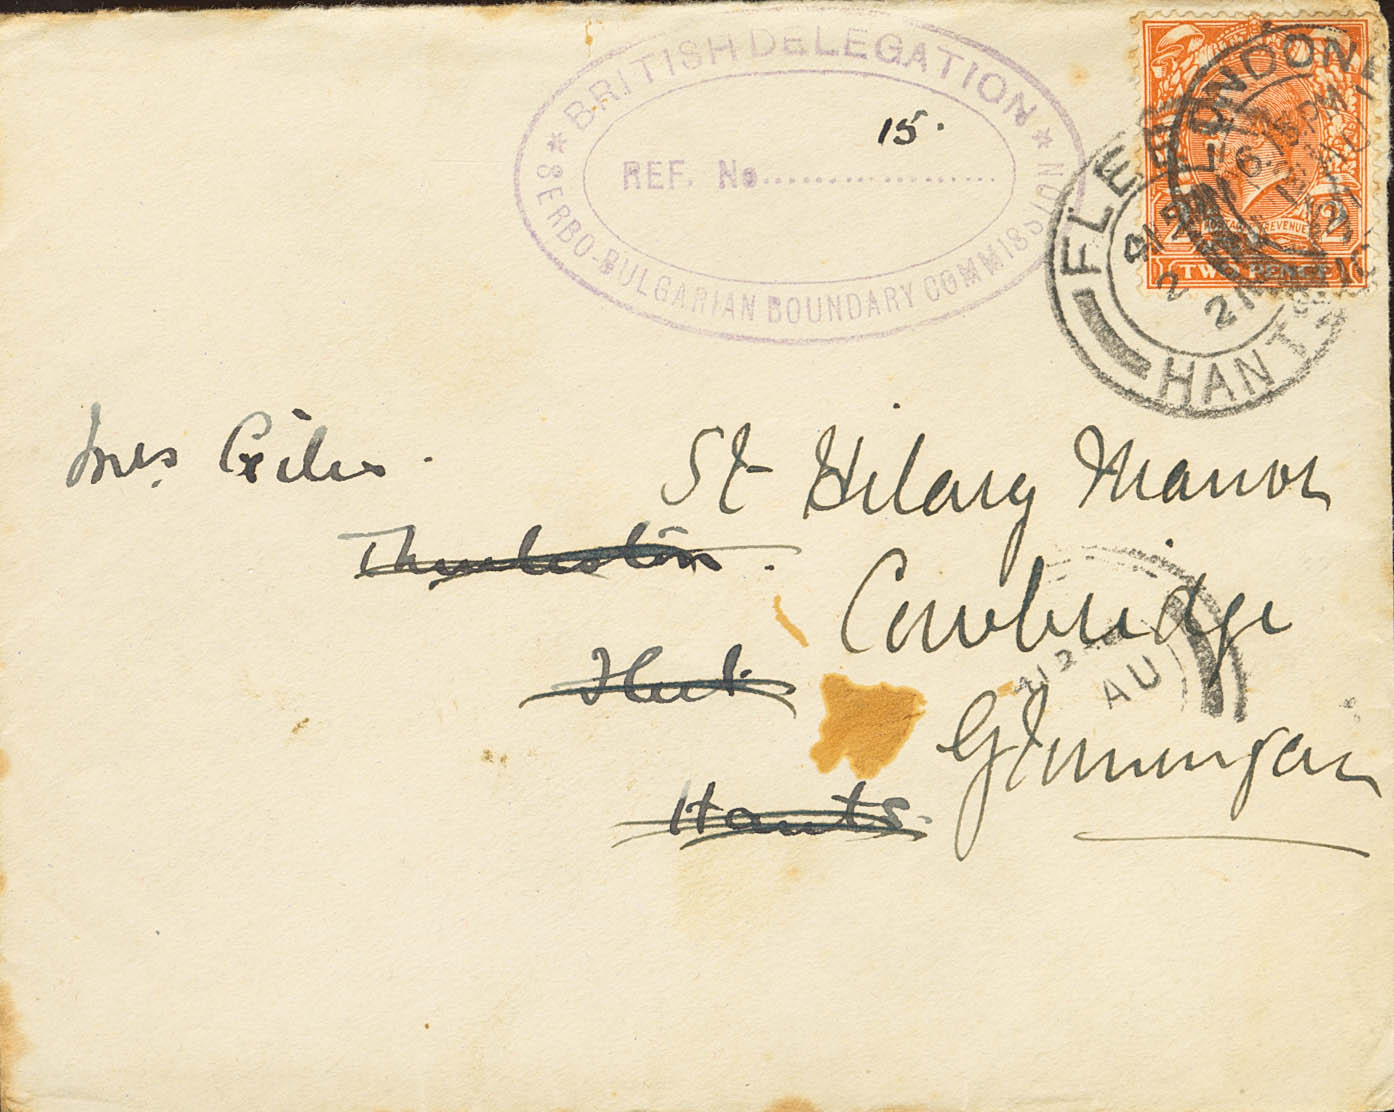 BRITISH DELEGATION
15.
REF. No
SERBO-BULGARIAN BOUNDARY COMMISSION
LONDON
6.15 PM
21
FLEET
HANTS
2
21
REVENUE
2
TWO PENCE
Mrs Giles.
St Hilary Manor
Thurleston.
Cowbridge
Fleet.
AU
Glamorgan
Hants.